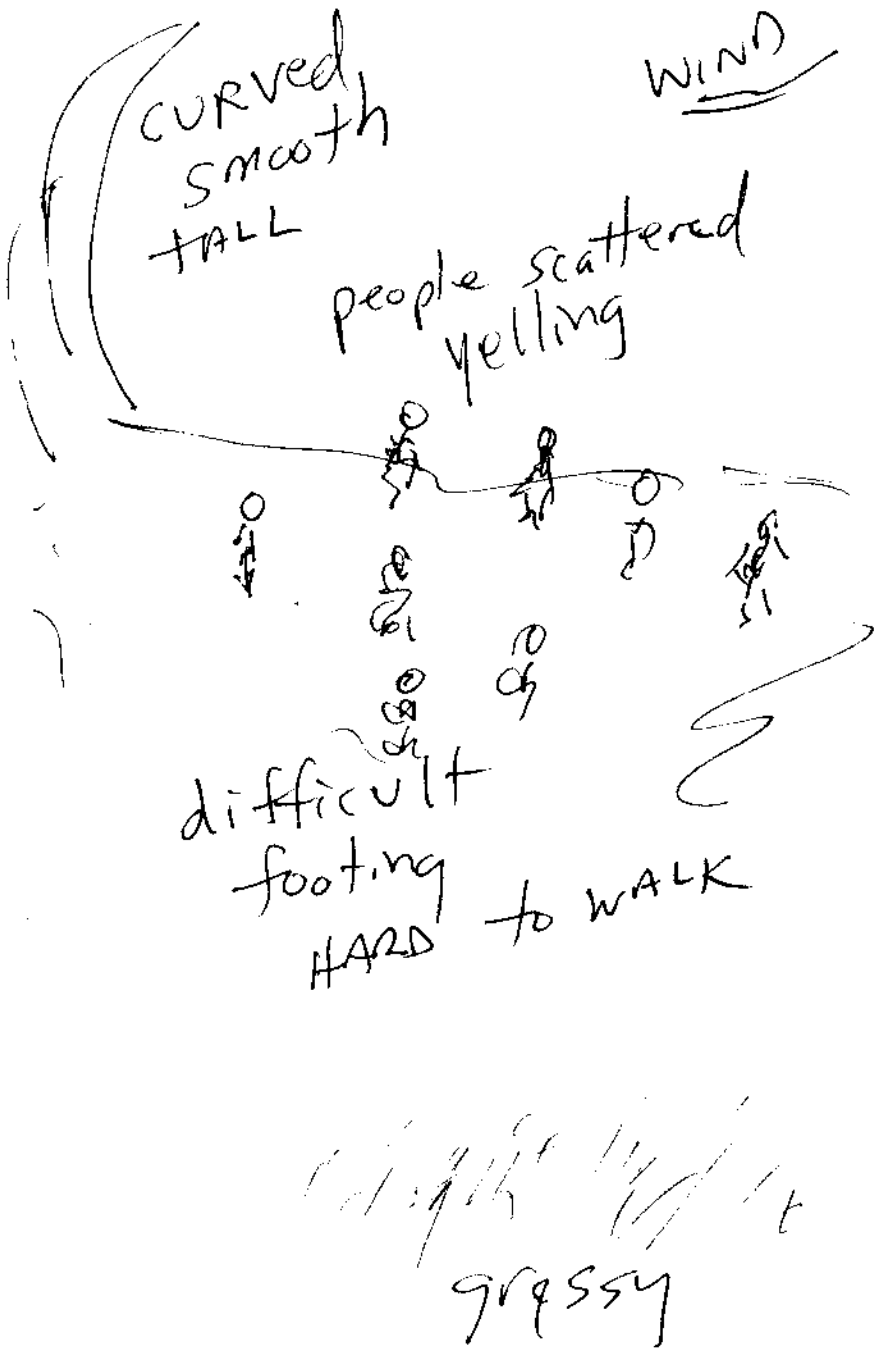 CURVED
WIND
smooth
TALL
people scattered
yelling
difficult
footing
HARD to WALK
grassy